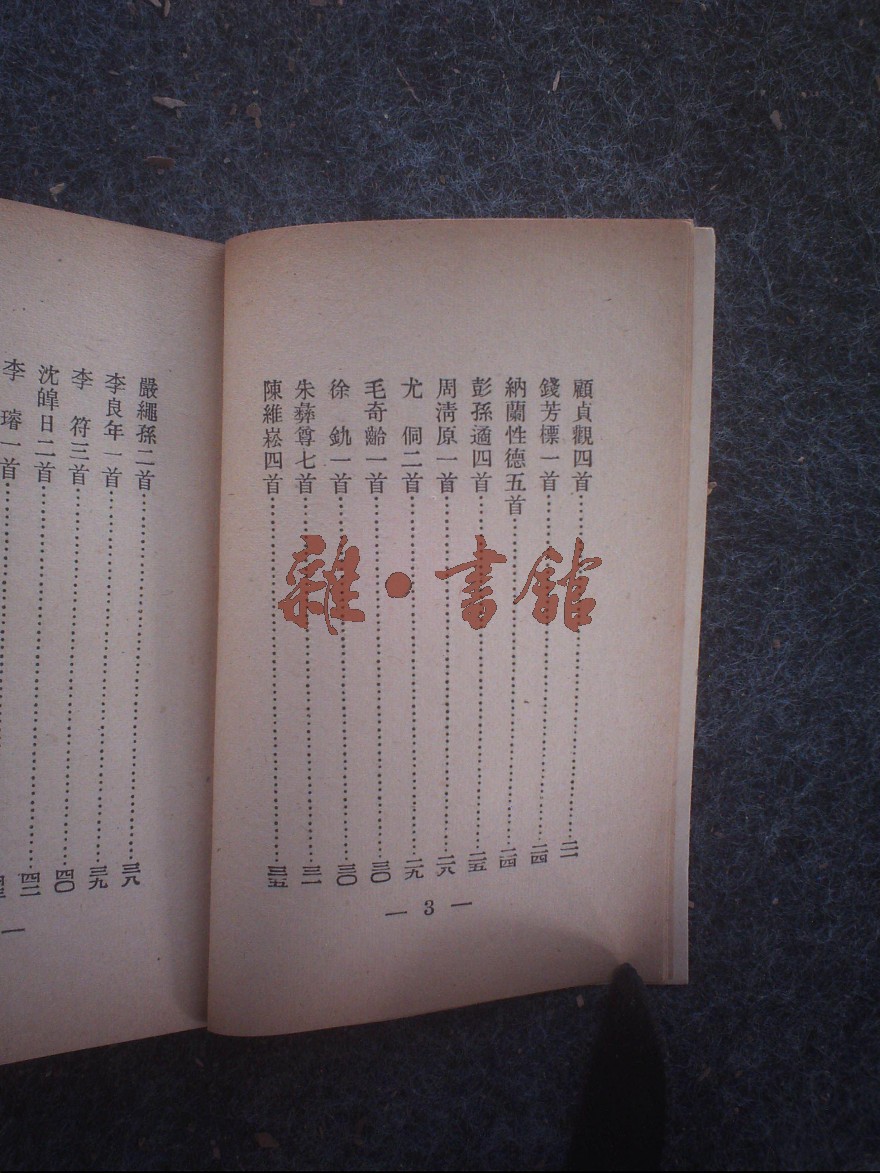 顧貞觀四首……二一
錢芳標一首……二四
納蘭性德五首……二四
彭孫遹四首……二五
周清原一首……二八
尤　侗二首……二九
毛奇齡一首……三〇
徐　釚一首……三〇
朱彝尊七首……三一
陳維崧四首……三五
— 3 —
嚴繩孫二首……三八
李良年一首……三九
李　符三首……四〇
沈皥日二首……四二
李　璿一首……
雜·書館